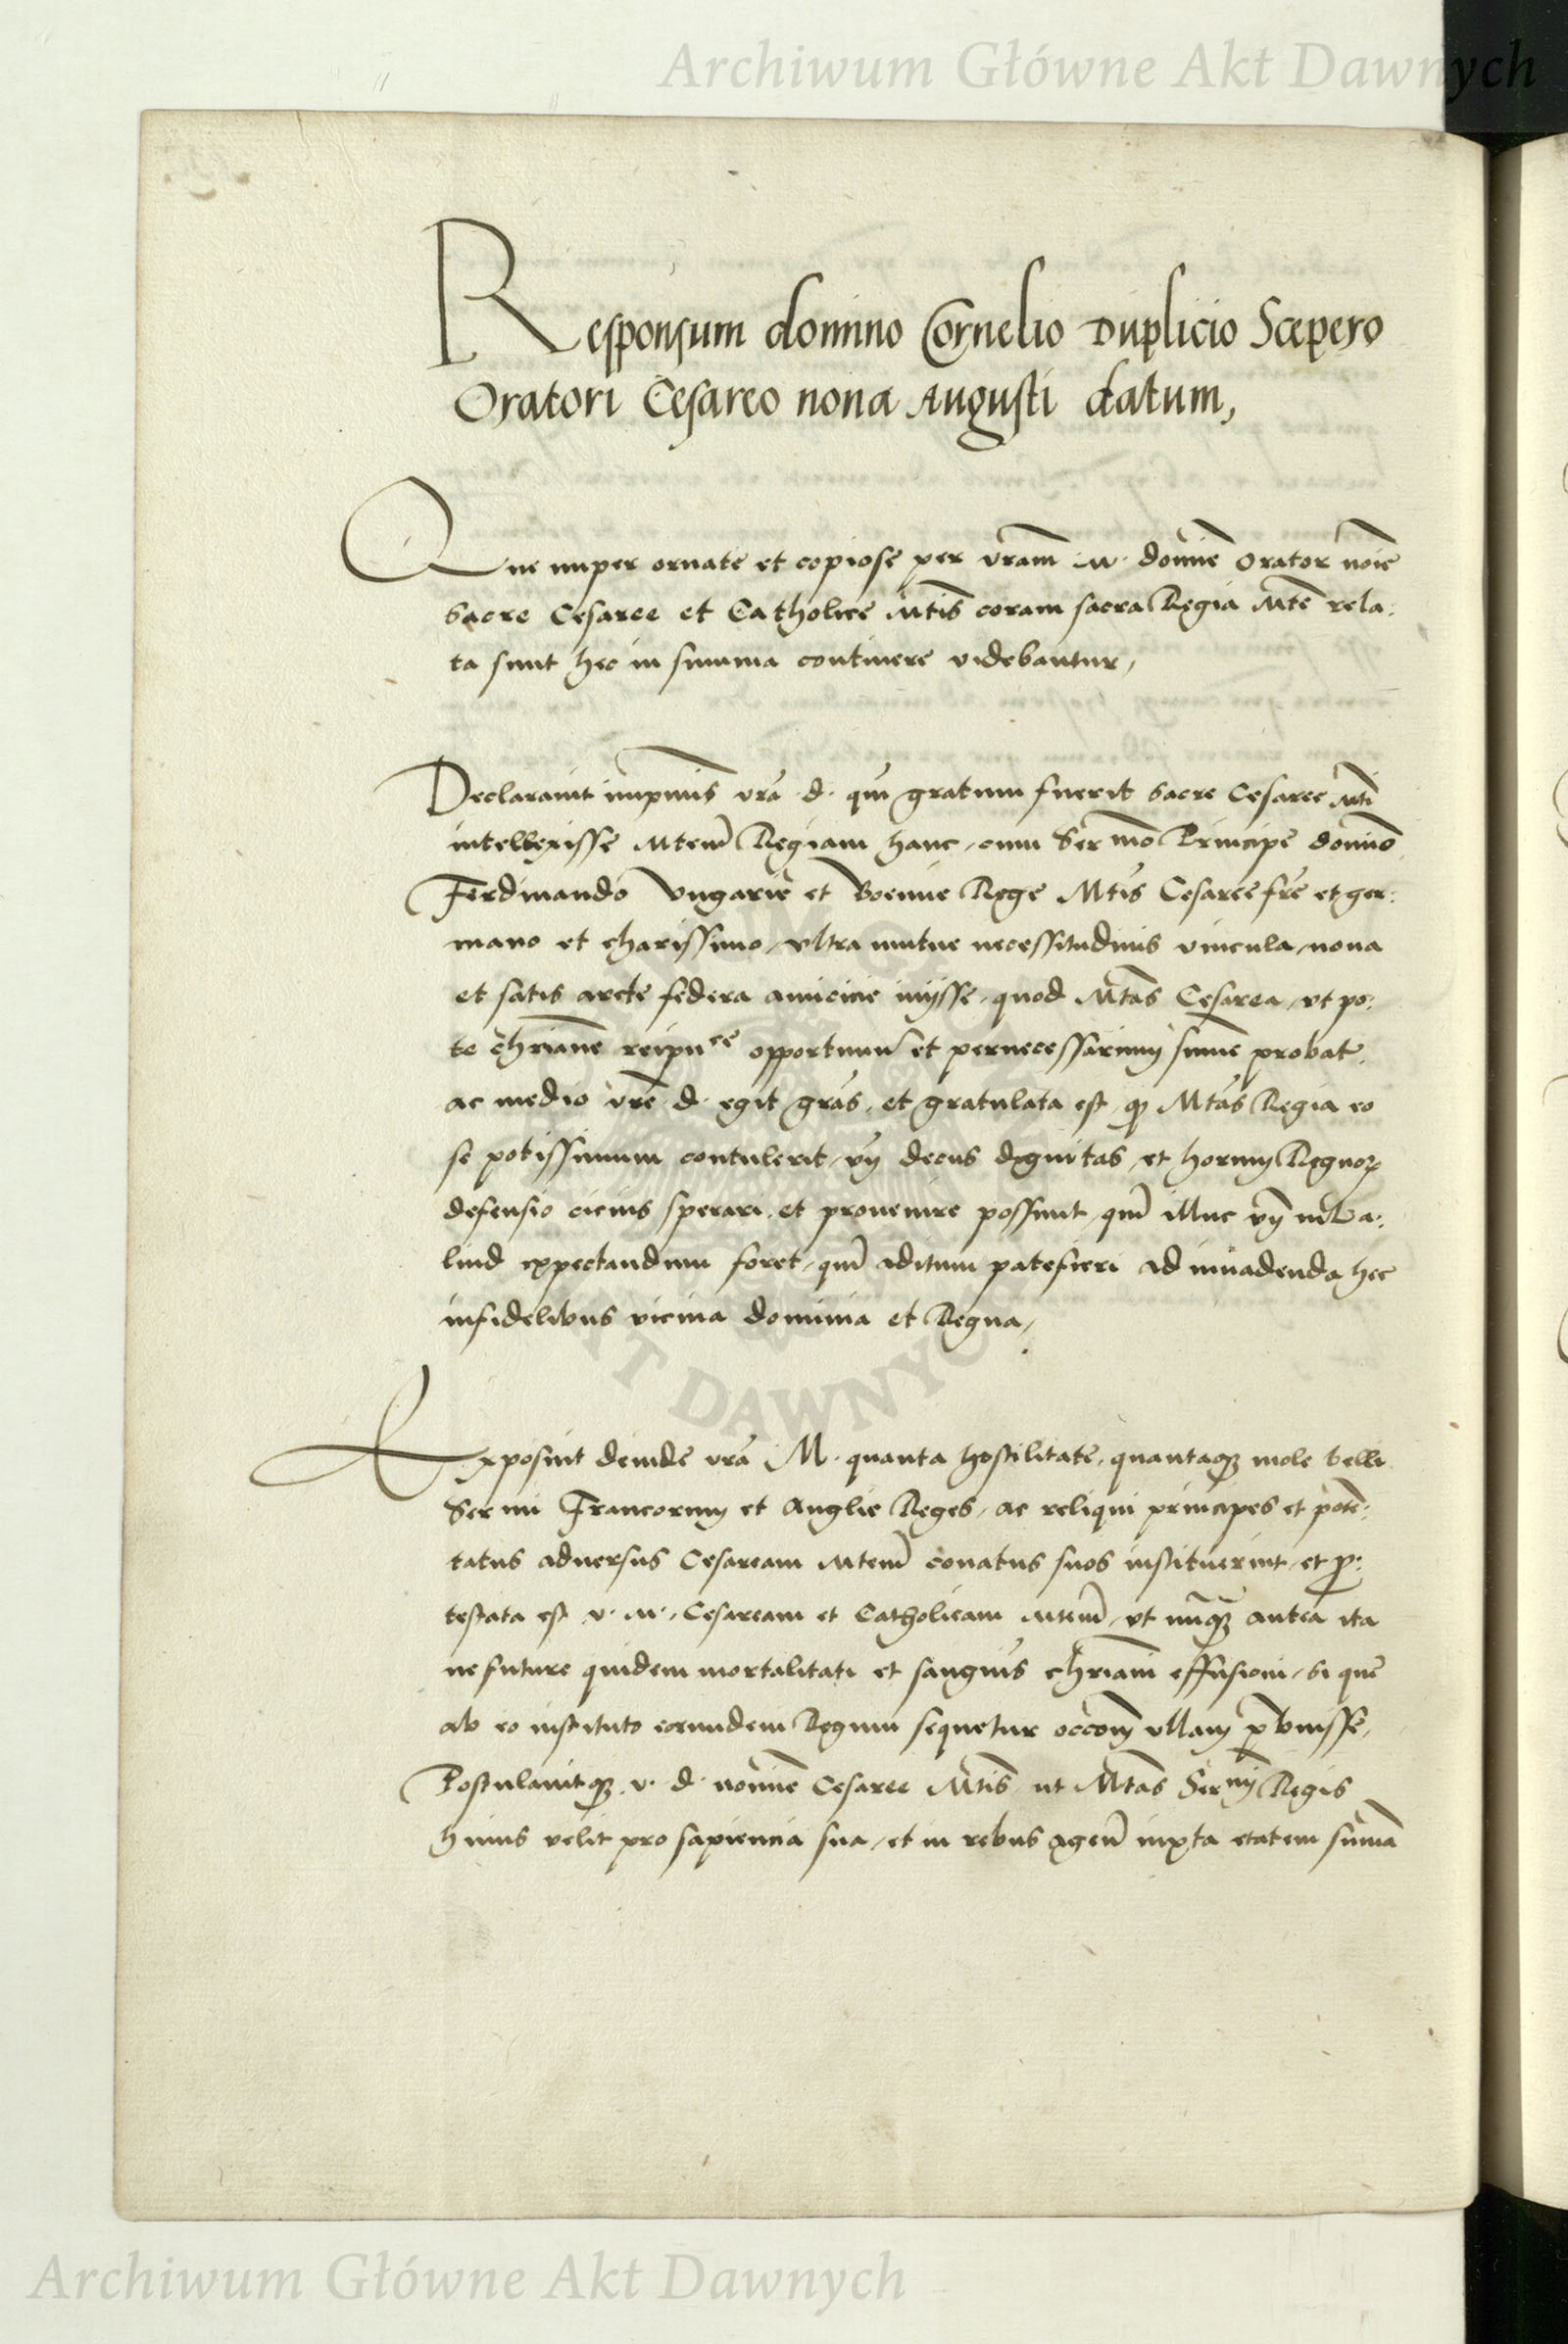 Archiwum Główne Akt Dawnych
Responsum domino Cornelio Duplicio Scepero
Oratori Cesareo nona Augusti datum,
Que nuper ornate et copiose per vram M. domine Orator noie
Sacre Cesaree et Catholice Mtis coram sacra Regia Mte rela:
ta sunt hec in summa continere videbantur,
Declaravit inprimis vra d. qm gratum fuerit Sacre Cesaree Mti
intellexisse Mtem Regiam hanc, cum Sermo Principe domino
Ferdinando Vngarie et Boemie Rege Mtis Cesaree fre et ger:
mano et charissimo, vltra mutue necessitudinis vincula, nova
et satis arcte federa amicicie inijsse, quod Mtas Cesarea, vt po:
te chriane reipuce opportunum et pernecessarium summe probat,
ac medio vre d. egit gras, et gratulata est, qd Mtas Regia eo
se potissimum contulerit, vn decus dignitas, et horum Regnorum
defensio cicius sperari, et provenire possunt, qm illuc vn nil a:
liud expectandum foret, qm aditum patefieri ad invadenda hec
infidelibus vicina dominia et Regna,
Exposuit deinde vra M. quanta hostilitate, quantaque mole belli
Sermi Francorum et Anglie Reges, ac reliqui principes et poten:
tatus adversus Cesaream Mtem conatus suos instituerint, et pro:
testata est v. M., Cesaream et Catholicam Mtem, vt nunquam antea ita
ne future quidem mortalitati et sanguis chriani effusioni, si que
ab eo instituto eorundem Regum sequetur occom vllam prebuisse,
Postulavitque v. d. nomine Cesaree Mtis ut Mtas Sermi Regis
huius velit pro sapiencia sua, et in rebus agen iuxta etatem summa
AKT DAWNYCH
Archiwum Główne Akt Dawnych